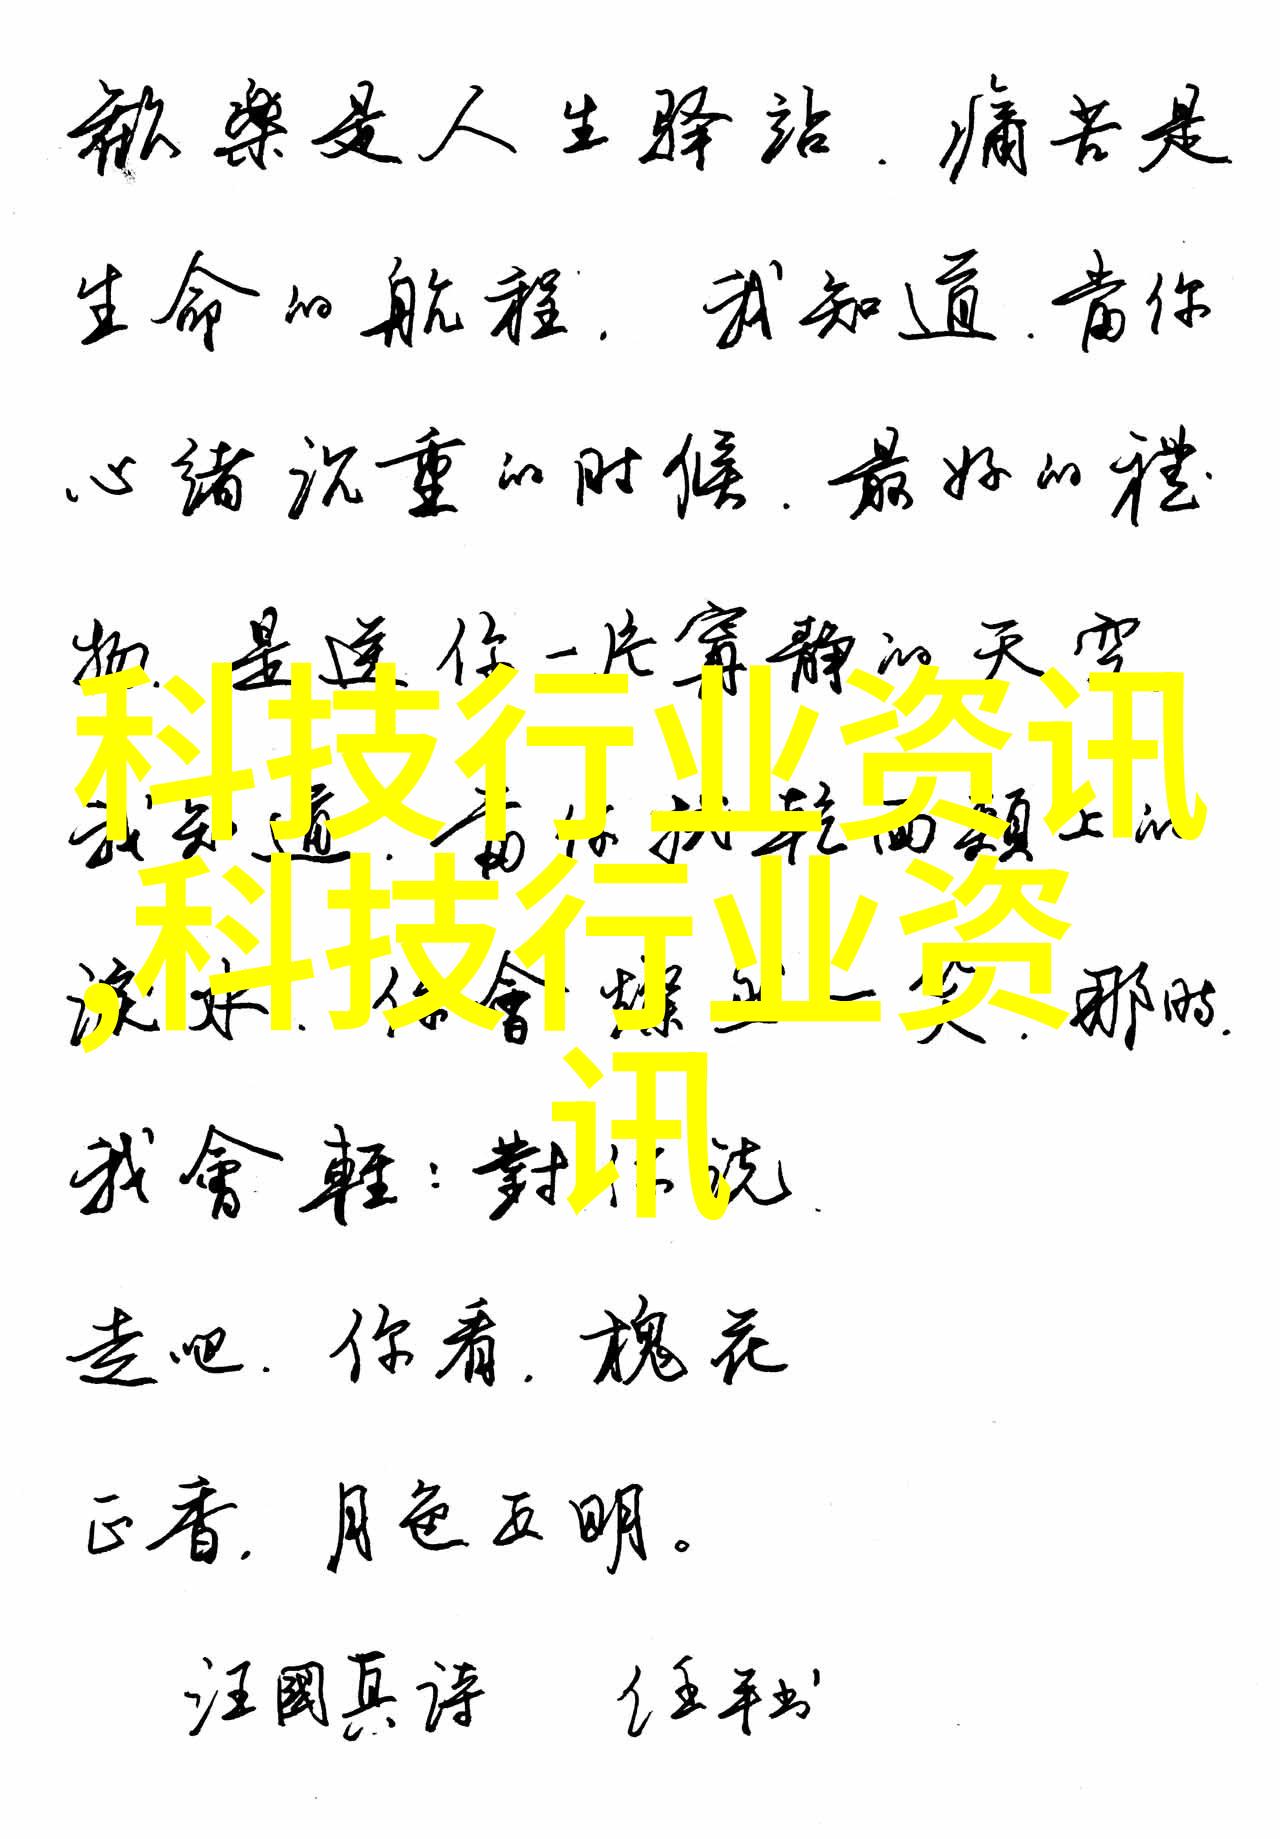 歡樂是人生驿站.痛苦是
生命的航程.我知道.當你
心緒沉重的时候.最好的禮
物.是送你一片寧静的天空
科技行业资讯
我知道.當你 乾面頰上的
,科技行业资
淚水.你會燦 一笑.那時.
讯
我會輕:對你说.
走吧.你看.槐花
正香.月色正明。
汪國真诗 任平书